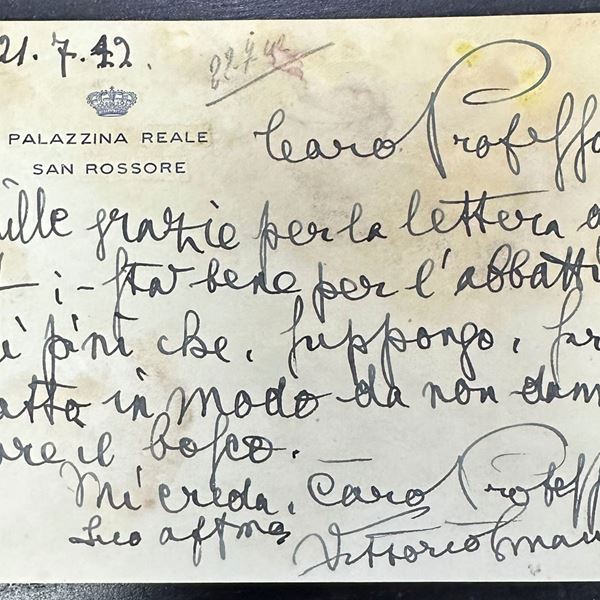 21.7.42.
22.7.42
PALAZZINA REALE
SAN ROSSORE
Caro Professo
ille grazie per la lettera
- i - sta bene per l'abbatti
i pini che, suppongo, sar
atto in modo da non dan
are il bosco.
Mi creda, Caro Profess
Suo affmo
Vittorio Eman